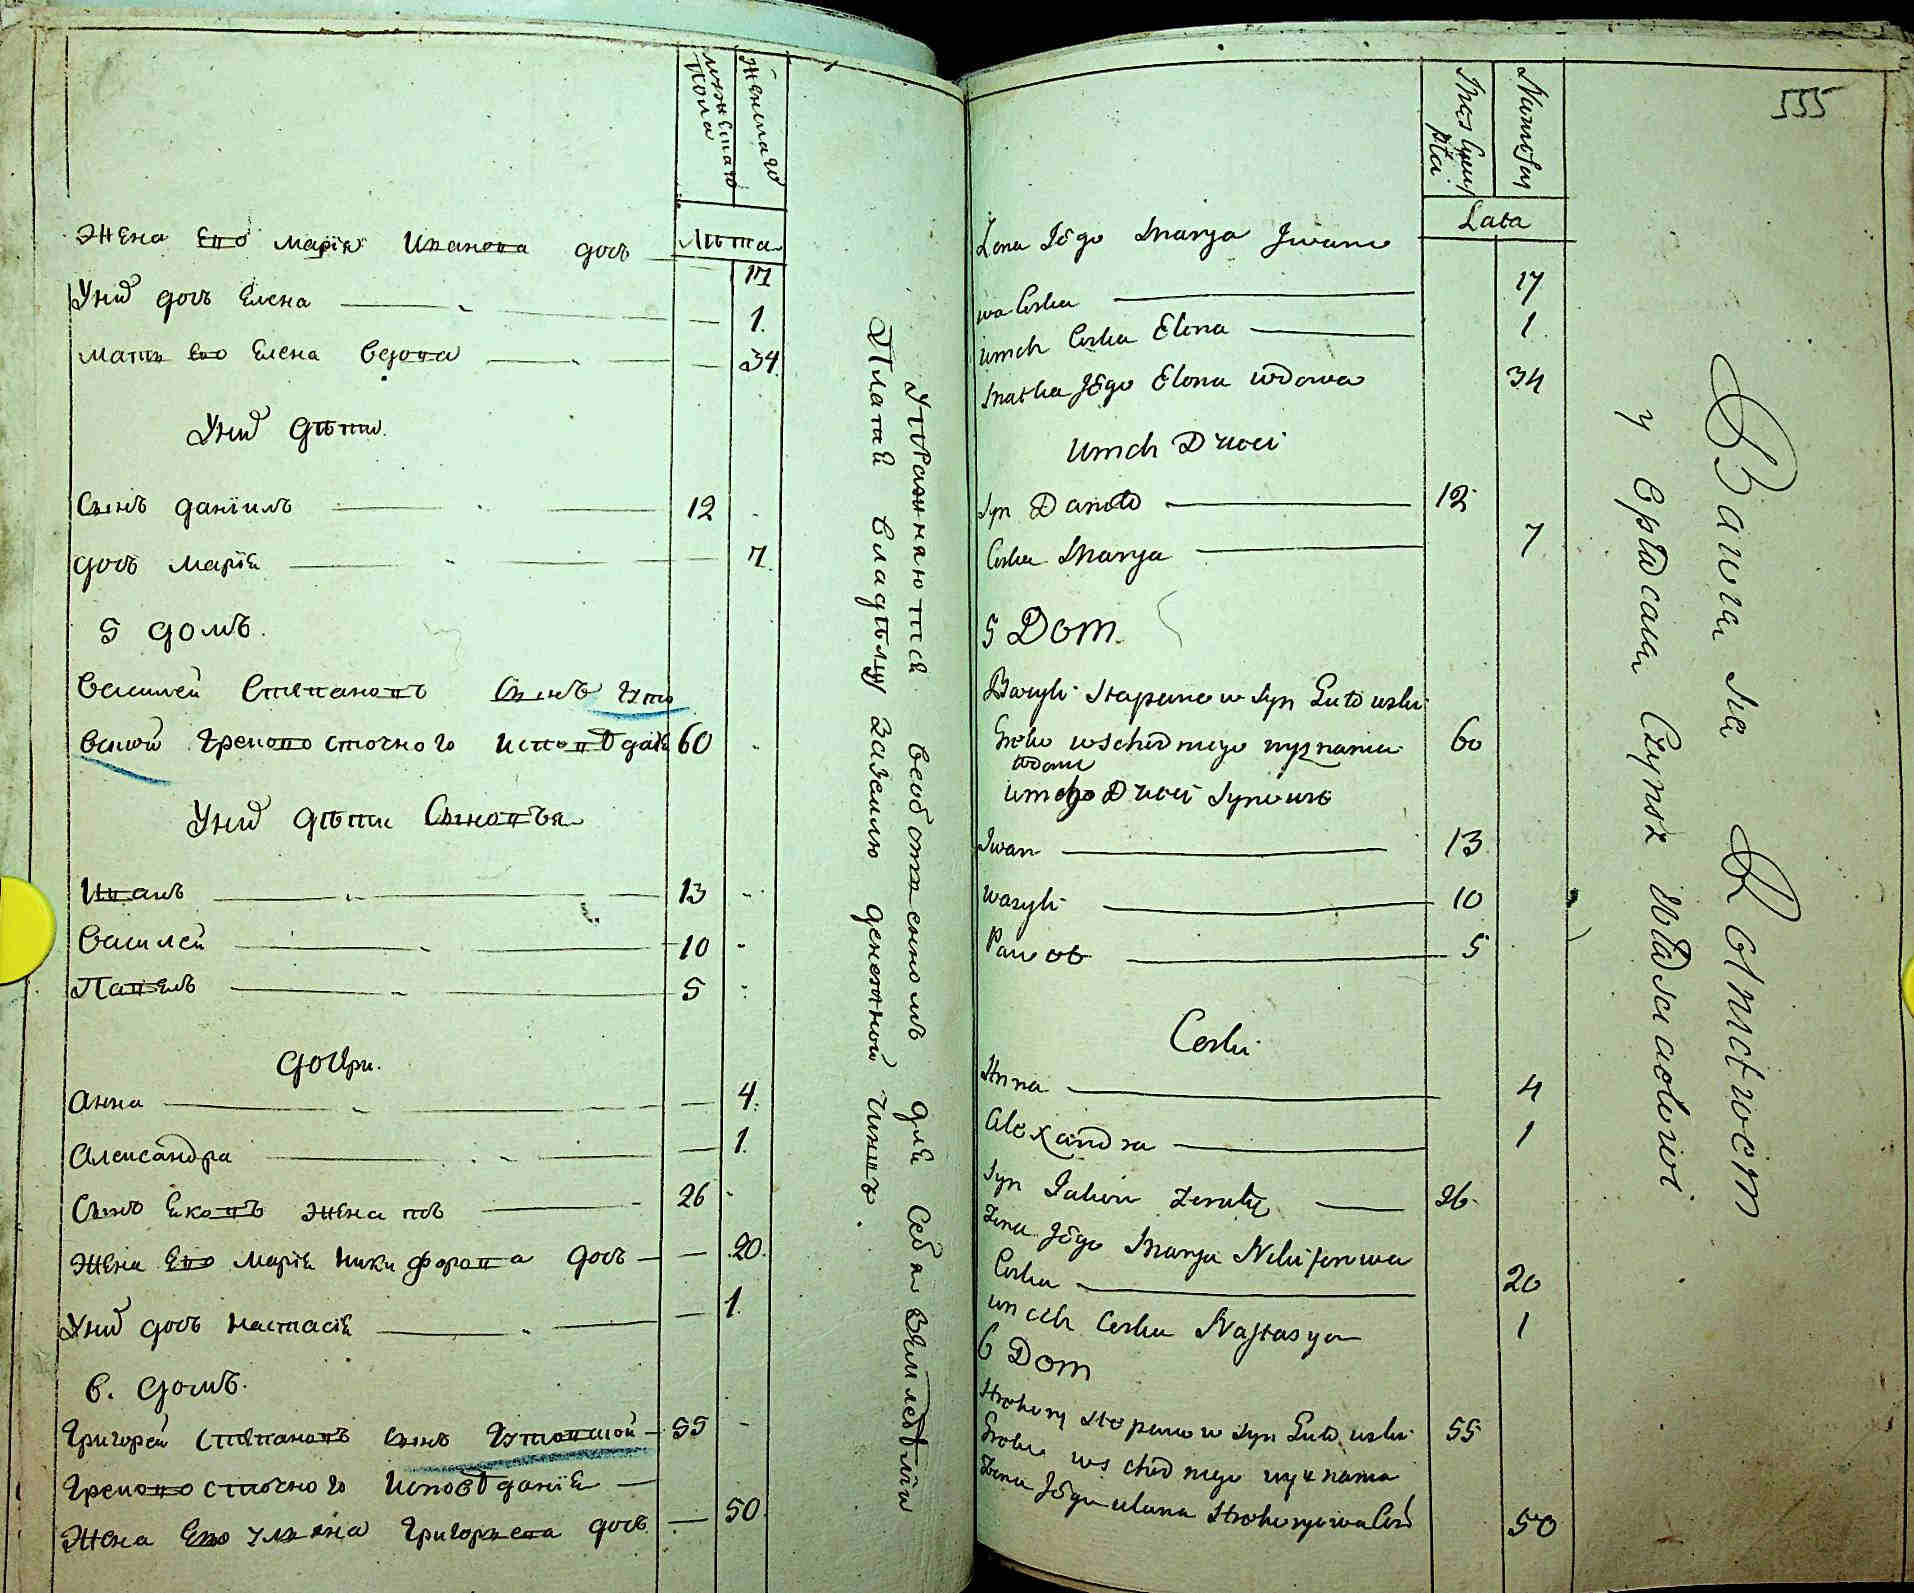 мужескаго
пола
Женскаго
Лѣта
Жена Его марія Иванова дочь
17
Униѣ дочь Елена 1.
мать Его Елена Вдова 34
Униѣ Дѣти.
Сынъ даніилъ 12
дочь марія 7.
5 домъ.
Василей Степановъ Сынъ Гуто
вской Грековосточного исповѣдан 60
Униѣ дѣти Сыновья
Иванъ 13
Василей 10
Павелъ 5
Дочри.
Анна 4.
Александра 1.
Сынъ Яковъ женатъ 26
Жена Его марія никифорова дочь 20.
Униѣ дочь настасія 1.
6. домъ.
Григорей Степановъ Сынъ Гутовской 55
Грековосточного исповѣданія
Жена Его ульяна Григорьева дочь 50.
Упражнаются всобственномъ для Себя Земледѣліи
Платяй владѣлцу заземлю денежной чиншъ.
555
płci
Lata
Żona Jego Marya Iwano
wa Corka 17
umich Corka Elena 1
Matka Jego Elena wdowa 34
umich Dzieci
Syn Daniło 12
Corka Marya 7
5 Dom.
Bazyli Stepanow Syn Gutowski
Greko wschodniego wyznania 60
wdowiec
umego Dzieci Synowie
Iwan 13
wazyli 10
Paweł 5
Corki
Anna 4
Alexandra 1
Syn Jakow żonaty 26
żona Jego Marya Nikiforowa
Corka 20
unich Corka Nastasya 1
6 Dom
Hrehory Stepanow Syn Gutowski 55
Greko wschodniego wyznania
Żona Jego ulana Hrehoryowa Cor 50
Bawią się Rolnictwem
y Opłacaią Czynsz Właścicielowi